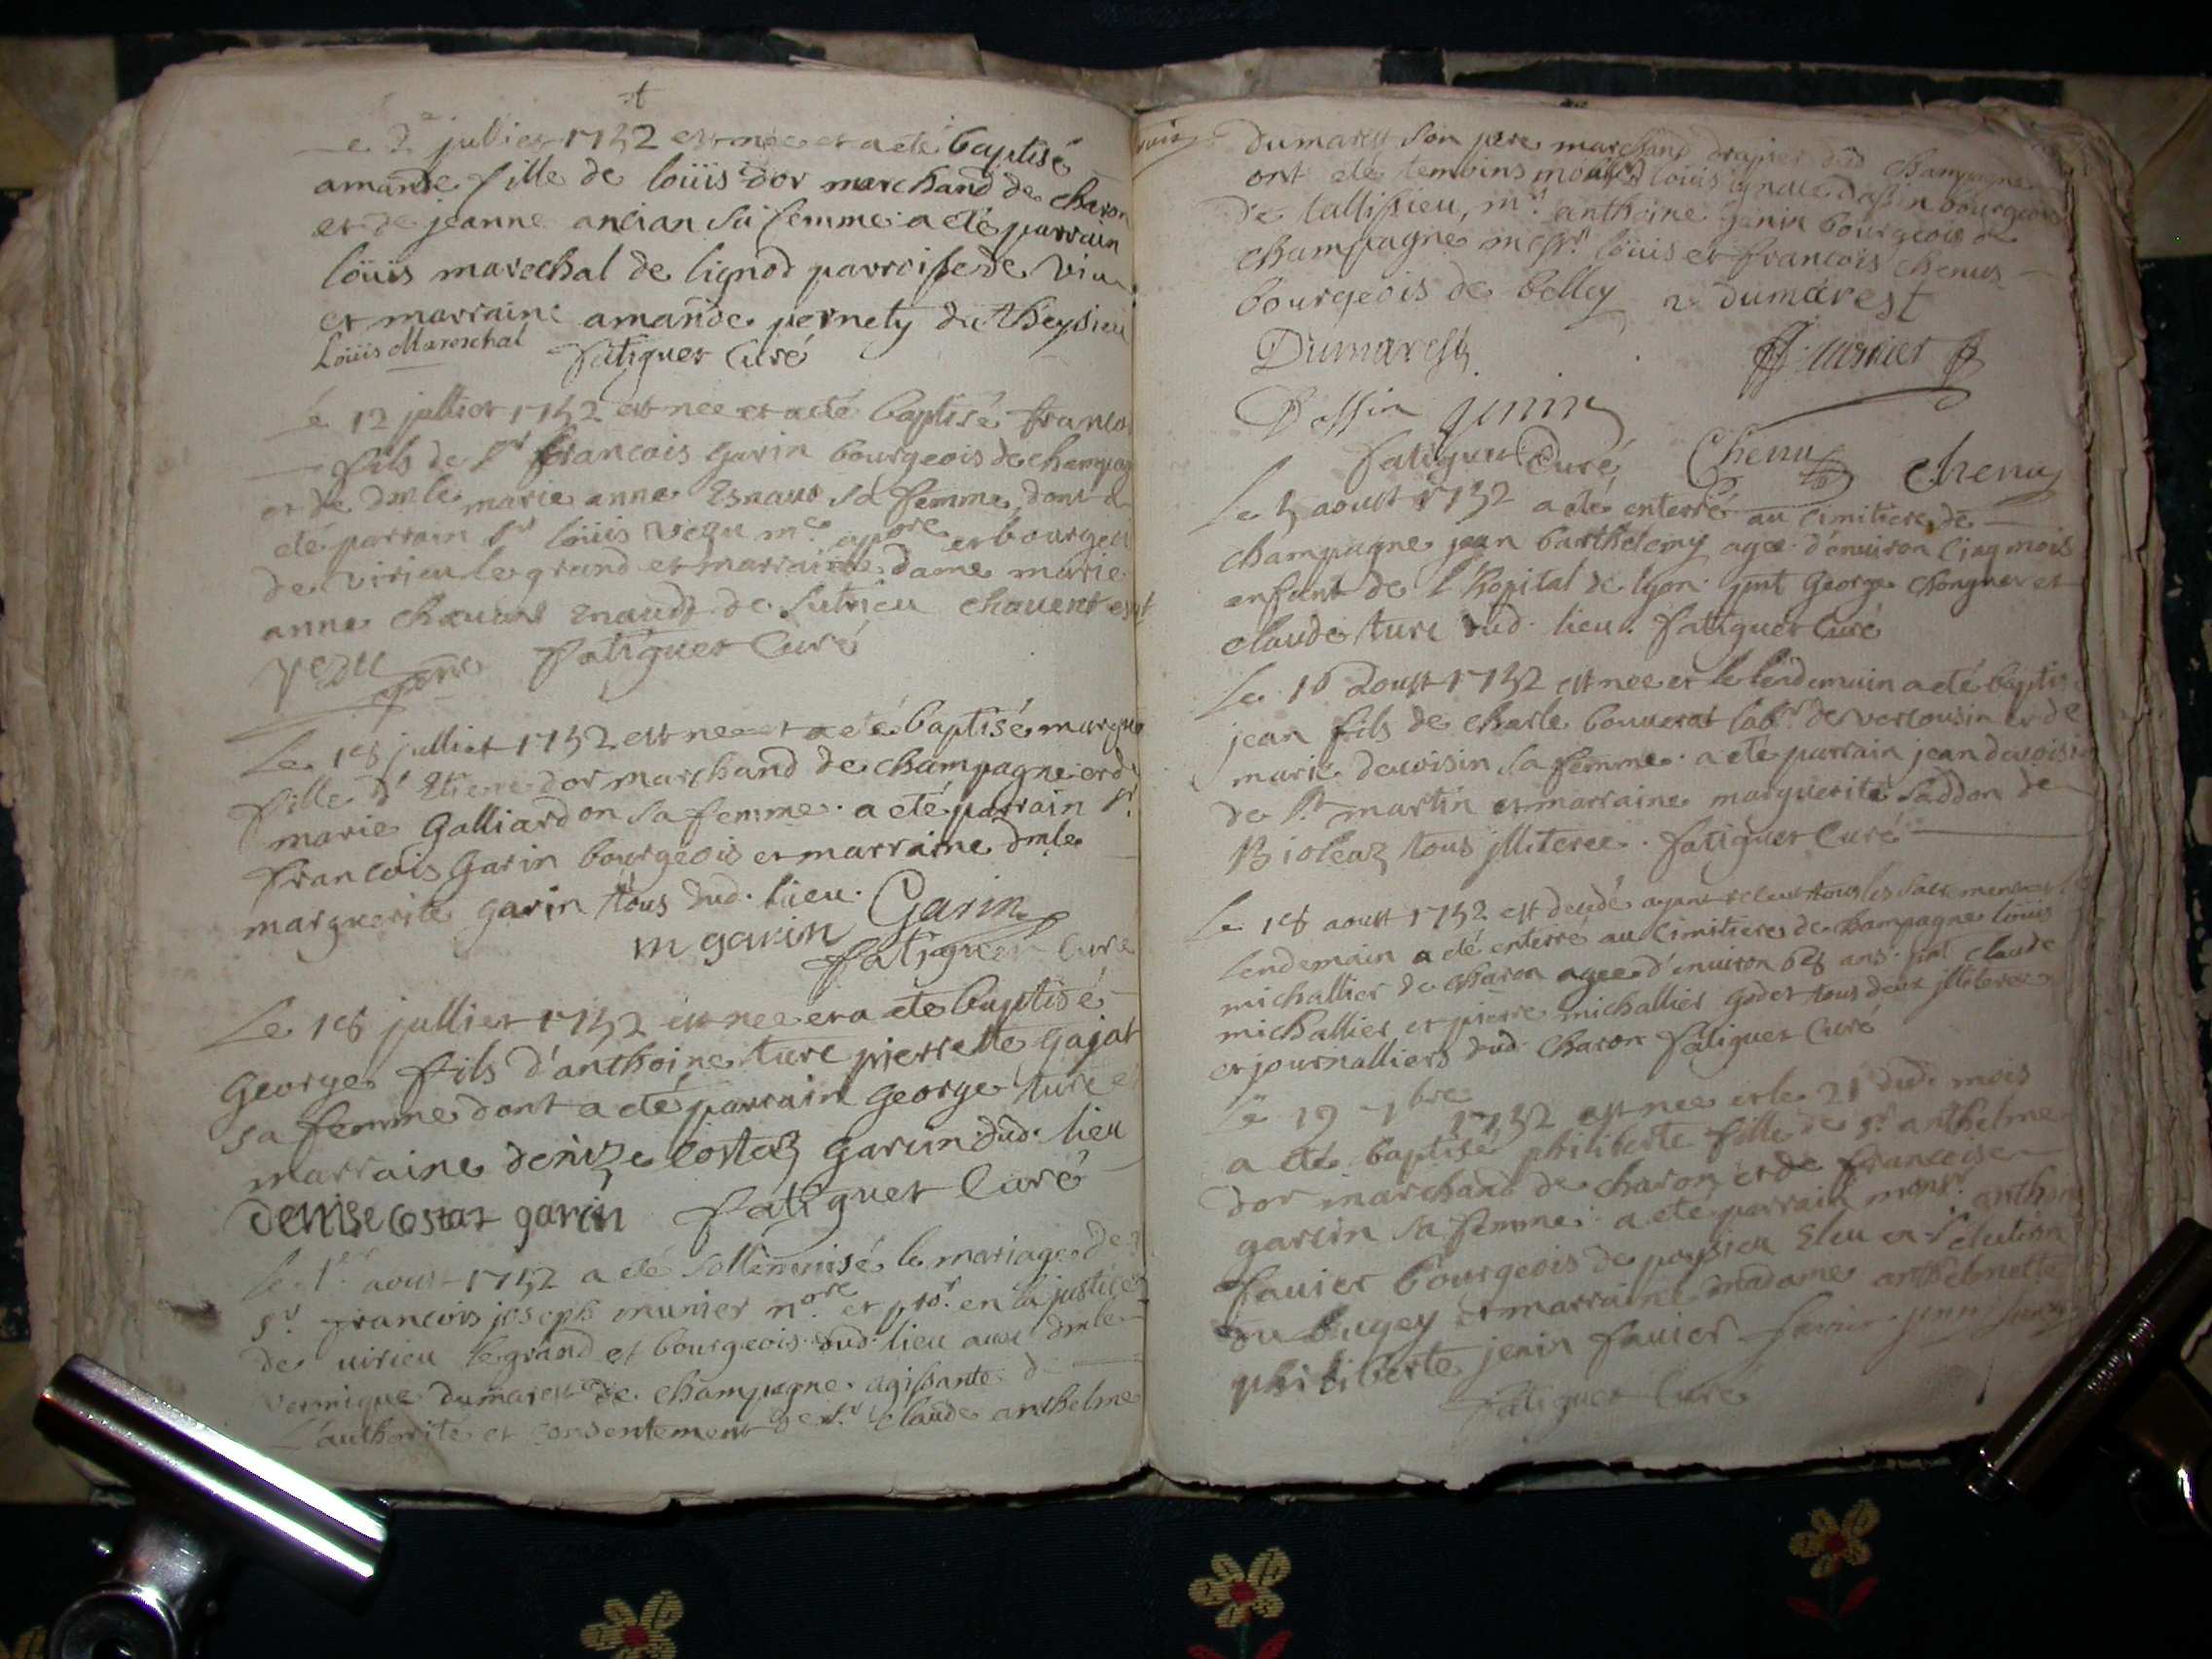 Le 2e julliet 1752 est née et a eté baptisé
amande fille de loüis dor marchand de charon
et de jeanne ancian sa femme a eté parrain
loüis marechal de lignod parroisse de viu
et marraine amande pernety de Theysieu
Loüis Mareschal fatiguet Curé
Le 12 julliet 1752 est nee et a eté baptisé franco
fils de Sr francois garin bourgeois de champag
et de dmle marie anne Esnaud sa femme, dont a
eté parrain Sr loüis vezu me apore et bourgeoi
de virieu le grand et marraine dame marie
anne chauent enaud de sutrieu chauent
Vezu fatiguet Curé
Le 18 julliet 1752 est nee et a eté baptisé margue
fille d'Etiene dor marchand de champagne et de
marie Galliardon sa femme. a eté parrain Sr.
francois Garin bourgeois et marraine dmle
marguerite garin tous dud. lieu. Garin
m garin fatiguet Curé
Le 18 julliet 1752 est nee et a ete baptisé
George fils d'anthoine turc pierrette gajat
sa femme dont a eté parrain george turc et
marraine denize costaz garin dud. lieu
denise costaz garin fatiguet Curé
Le 1er aoust 1752 a eté sollemnisé le mariage de
Sr. francois joseph munier nore et pror. en la justice
de uirieu le grand et bourgeois dud. lieu auec dmle
vernique dumarest de champagne agissante de
L'authorité et consentement de Sr claude anthelme
dumarest son pere marchand drapier dud champagne
ont eté temoins louis ignace dassin bourgeois
de tallissieu, mr. anthoine genin bourgeois de
champagne messrs. loüis et francois chenus
bourgeois de belley v dumarest
Dumarest munier
Dassin genin
fatiguet Curé Chenu chenu
Le 5 aoust 1752 a eté enterré au cimitiere de
champagne jean barthelemy agee d'enuiron cinq mois
enfant de l'hopital de lyon. pnt George chongner et
claude turc dud. lieu. fatiguet Curé
Le 16 Doust 1752 est nee et le lendemain a eté baptis
jean fils de charle bouuerat labr de vercousin et de
marie devoisin sa femme. a eté parrain jean devoisi
de St. martin et marraine marguerite saddon de
Bioleaz tous jlliteree. fatiguet Curé
Le 18 aoust 1752 est decedé ayant receut tous les sacrements et le
lendemain a eté enterré au cimitiere de champagne loüis
michallier de charon agee d'enuiron 68 ans. pnt claude
michallier et pierre michallier godet tous deux jlliteree
et journalliers dud. charon fatiguet Curé
Le 19 7bre 1752 est nee et le 21 dud. mois
a eté baptisé philiberte fille de Sr. anthelme
dor marchand de charon et de francoise
garcin sa femme. a eté parrain monsr. anthoi
fauier bourgeois de poysieu Eleu en l'election
du bugey et marraine madame anthelmette
philiberte jenin fauier
fatiguet Curé